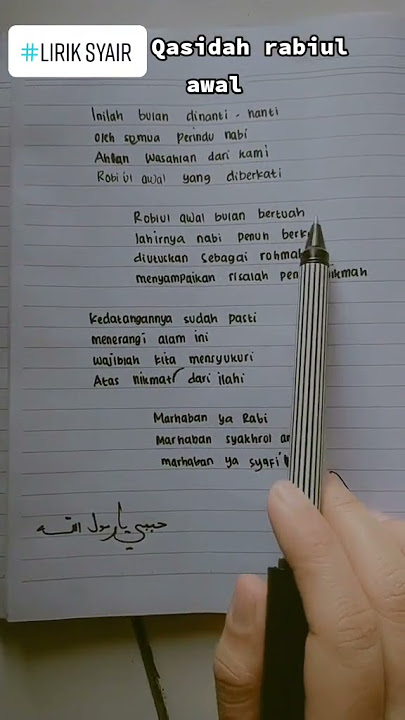 #LIRIK SYAIR
Qasidah rabiul
awal
Inilah bulan dinanti - nanti
oleh semua perindu nabi
Ahlan wasahlan dari kami
Robi'ul awal yang diberkati
Robiul awal bulan bertuah
lahirnya nabi penuh
diutuskan sebagai
menyampaikan risalah
Kedatangannya sudah pasti
menerangi alam ini
wajiblah kita mensyukuri
Atas nikmat dari ilahi
Marhaban ya Rabi
Marhaban syakhrol
marhaban ya
حبيبي يا رسول الله